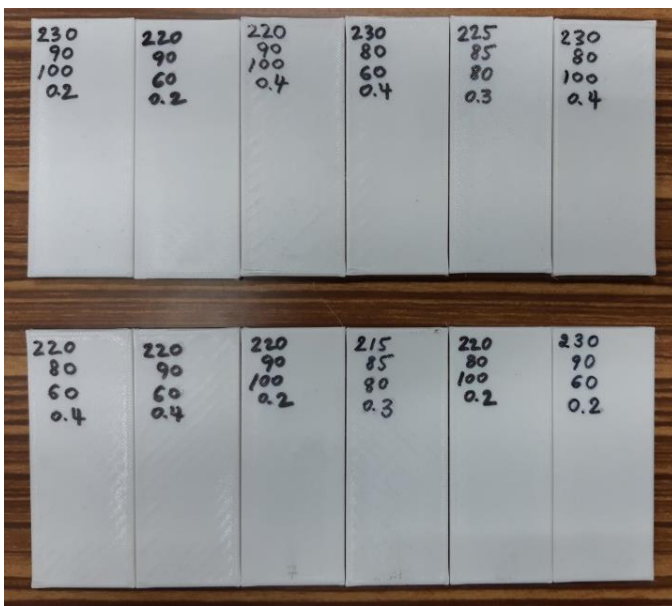 230
90
100
0.2
220
90
60
0.2
220
90
100
0.4
230
80
60
0.4
225
85
80
0.3
230
80
100
0.4
220
80
60
0.4
220
90
60
0.4
220
90
100
0.2
215
85
80
0.3
220
80
100
0.2
230
90
60
0.2